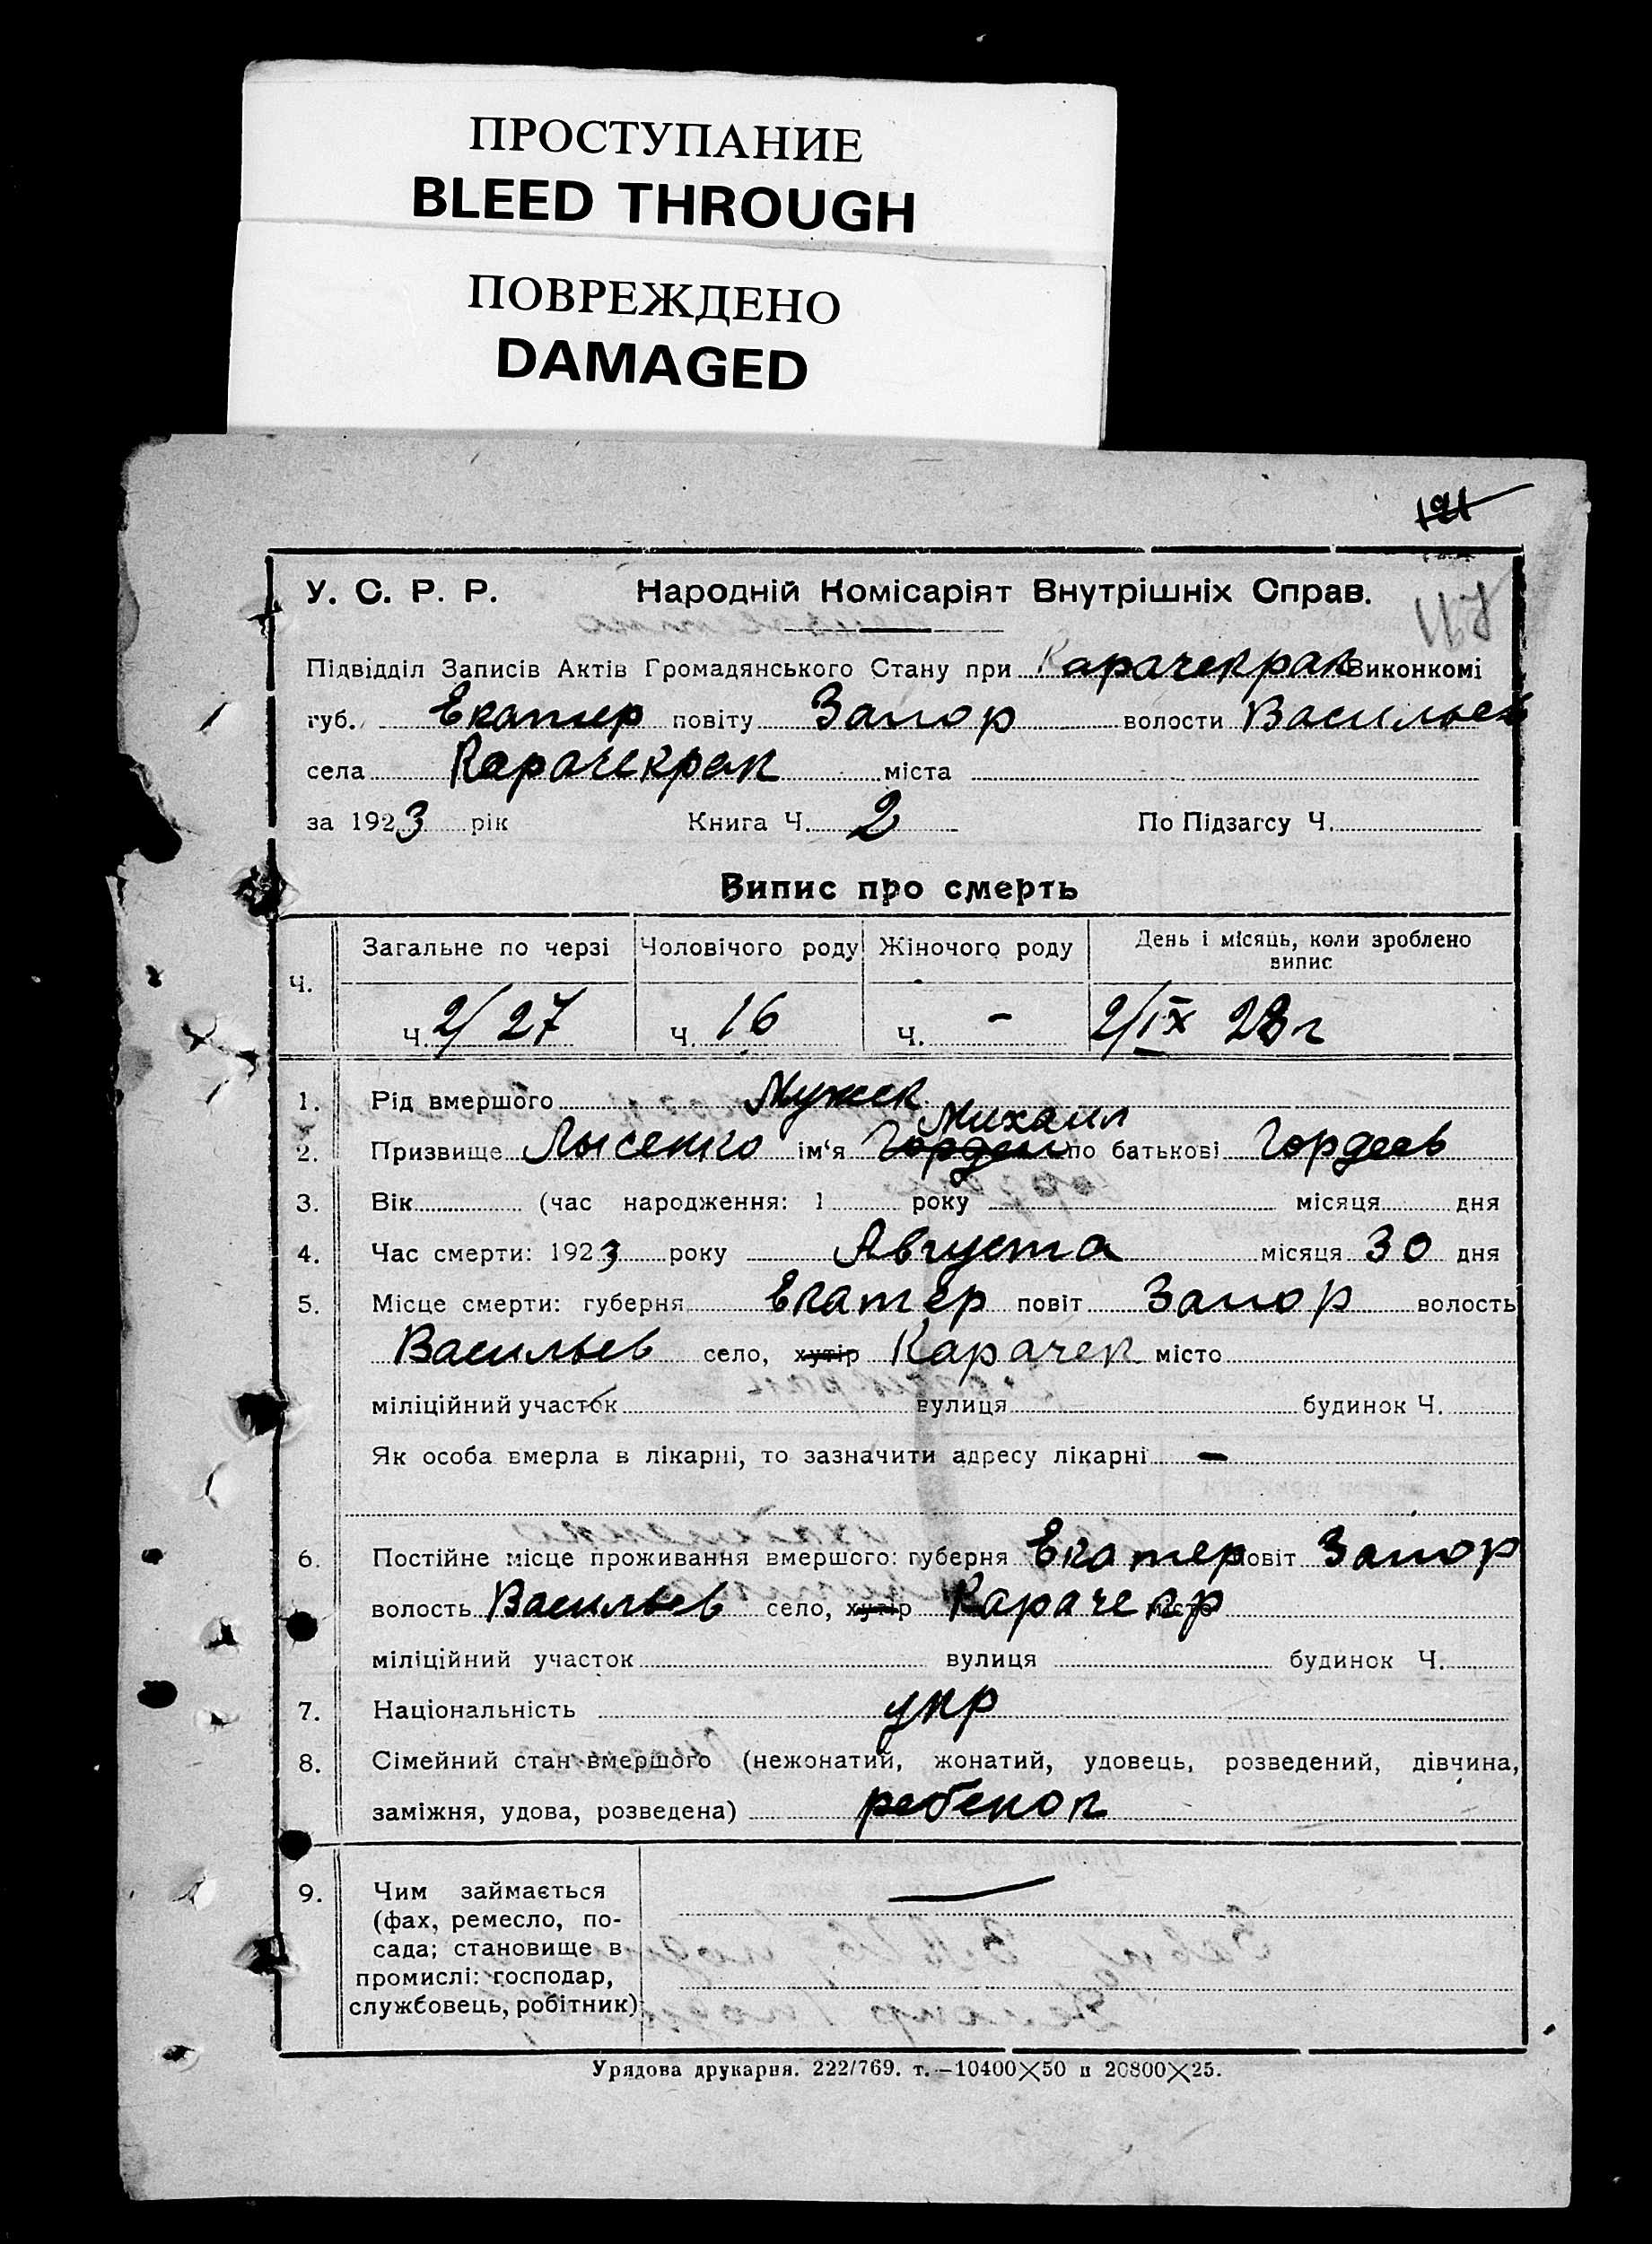 ПРОСТУПАНИЕ
BLEED THROUGH
ПОВРЕЖДЕНО
DAMAGED
121
У. С. Р. Р. Народній Комісаріят Внутрішніх Справ.
Підвідділ Записів Актів Громадянського Стану при Карачекрак Виконкомі
губ. Екатер повіту Запор волости Васильев
села Карачекрак міста
за 1923 рік Книга Ч. 2 По Підзагсу Ч.
Випис про смерть
Ч. Загальне по черзі Чоловічого роду Жіночого роду День і місяць, коли зроблено випис
Ч. 2/27 Ч. 16 Ч. - 2/IX 23 г
1. Рід вмершого Мужск
Михаил
2. Призвище Лысенко ім'я Гордей по батькові Гордеев
3. Вік (час народження: 1 року місяця дня
4. Час смерти: 1923 року Августа місяця 30 дня
5. Місце смерти: губерня Екатер повіт Запор волость
Васильев село, хутір Карачек місто
міліційний участок вулиця будинок Ч.
Як особа вмерла в лікарні, то зазначити адресу лікарні -
6. Постійне місце проживання вмершого: губерня Екатер повіт Запор
волость Васильев село, хутір Карачекр місто
міліційний участок вулиця будинок Ч.
7. Національність укр
8. Сімейний стан вмершого (нежонатий, жонатий, удовець, розведений, дівчина,
заміжня, удова, розведена) ребенок
9. Чим займається —
(фах, ремесло, по-
сада; становище в
промислі: господар,
службовець, робітник)
Урядова друкарня. 222/769. т.—10400×50 п 20800×25.